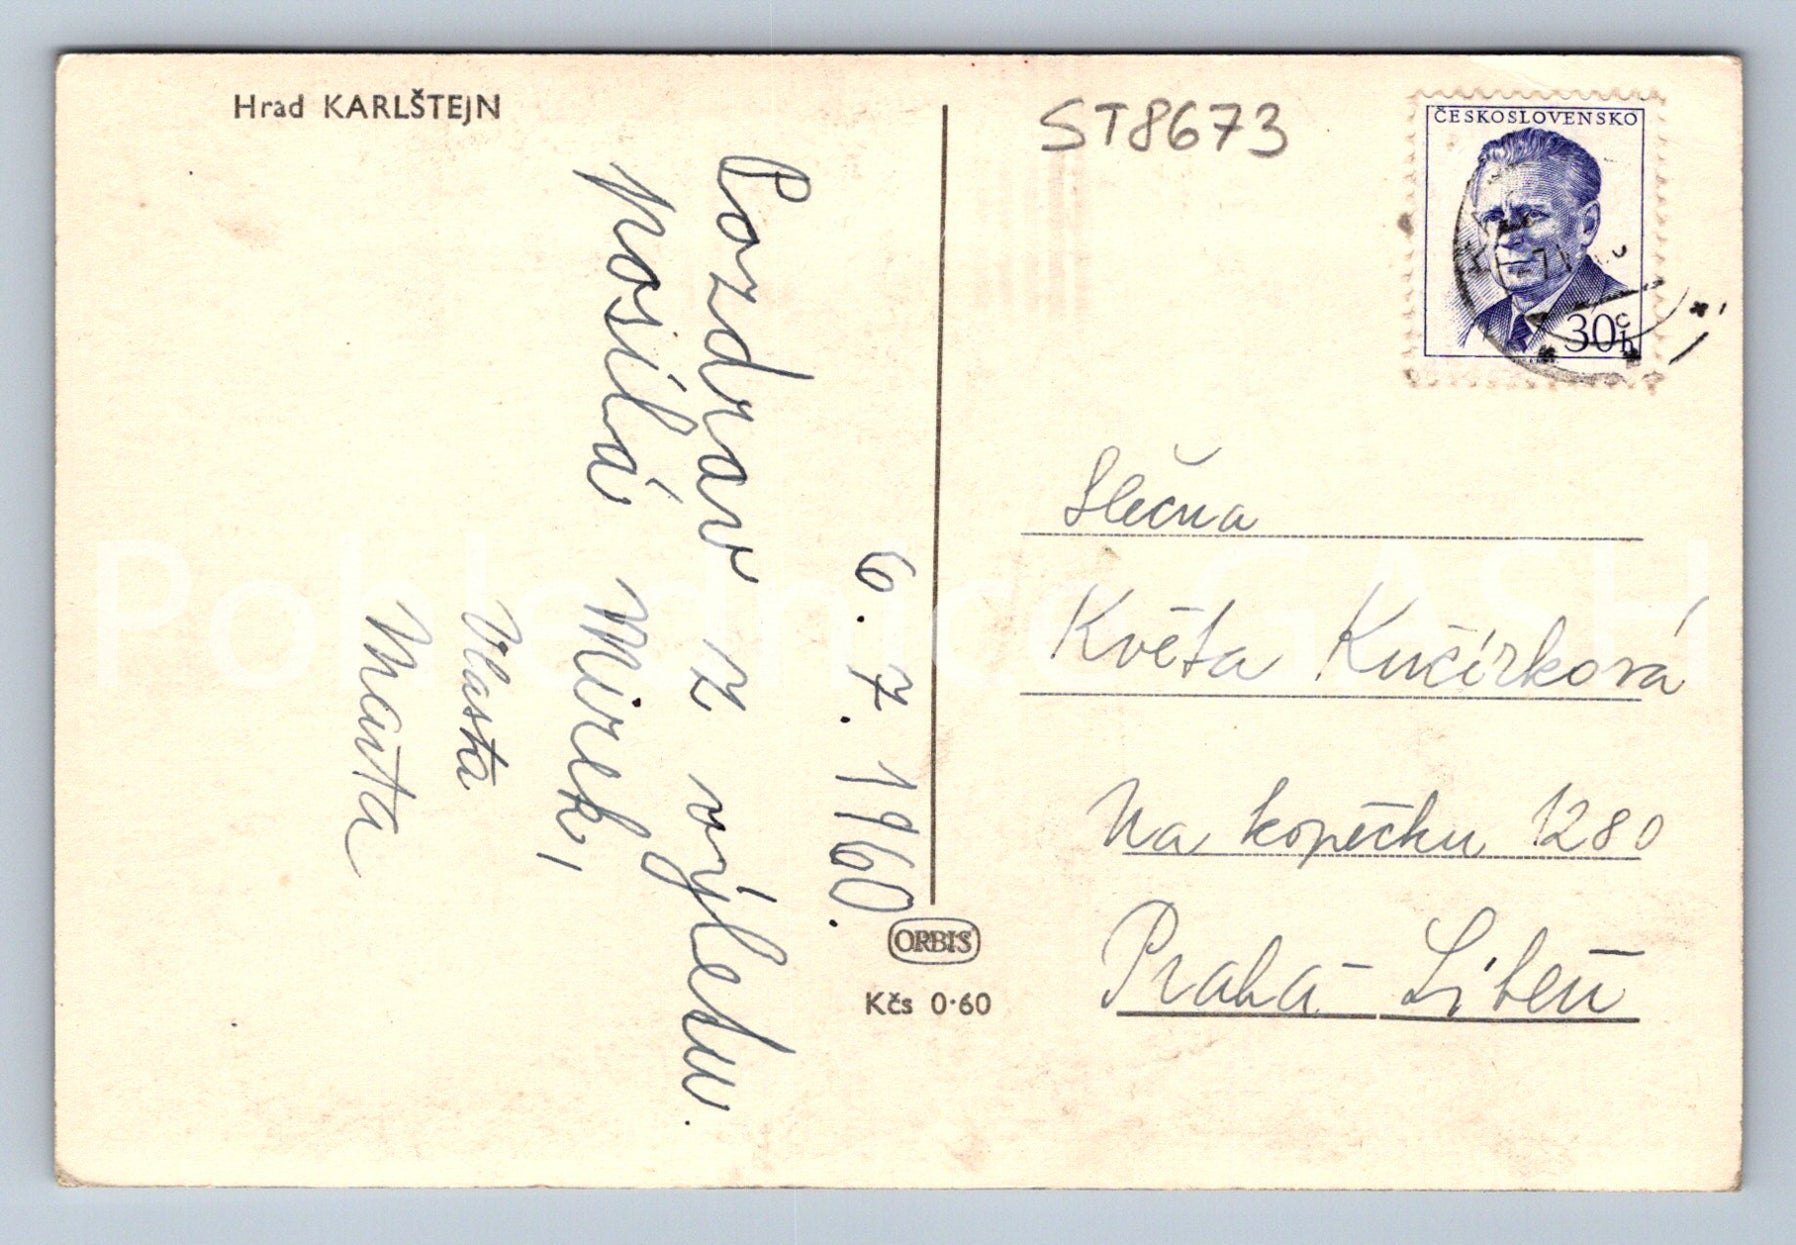 Hrad KARLŠTEJN
6. 7. 1960.
Pozdrav z výletu.
posílá Mirek,
Vlasta
Marta
ST8673
ČESKOSLOVENSKO
30 h
Slečna
Květa Kučírková
Na kopečku 1280
Praha - Libeň
ORBIS
Kčs 0·60
Pohlednice GASH